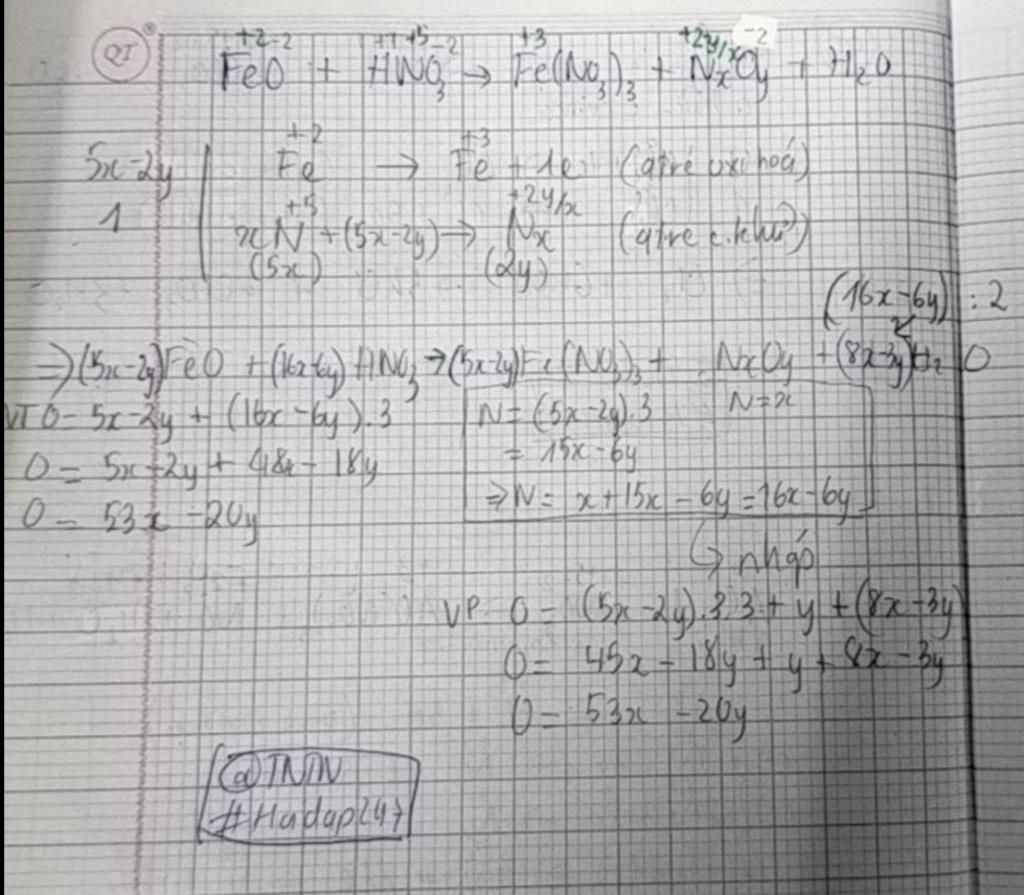 QT
+2 -2 +1 +5 -2 +3 +2y/x -2
FeO + HNO3 → Fe(NO3)3 + NxOy + H2O
5x-2y | +2 Fe → +3 Fe + 1e (qtré oxi hoá)
1 | +5 xN + (5x-2y) → +2y/x Nx (qtre c.khử)
(5x) (2y)
(16x-6y) : 2
⇒ (5x-2y)FeO + (16x-6y) HNO3 → (5x-2y)Fe(NO3)3 + NxOy + (8x-3y)H2O
VT O = 5x-2y + (16x-6y).3
N = (5x-2y).3 N = x
O = 5x-2y + 48x - 18y
= 15x-6y
O = 53x - 20y
⇒ N = x + 15x - 6y = 16x-6y
↳ nháp
VP O = (5x-2y).3.3 + y + (8x-3y)
O = 45x - 18y + y + 8x - 3y
O = 53x - 20y
@TNTN
#Hadap247